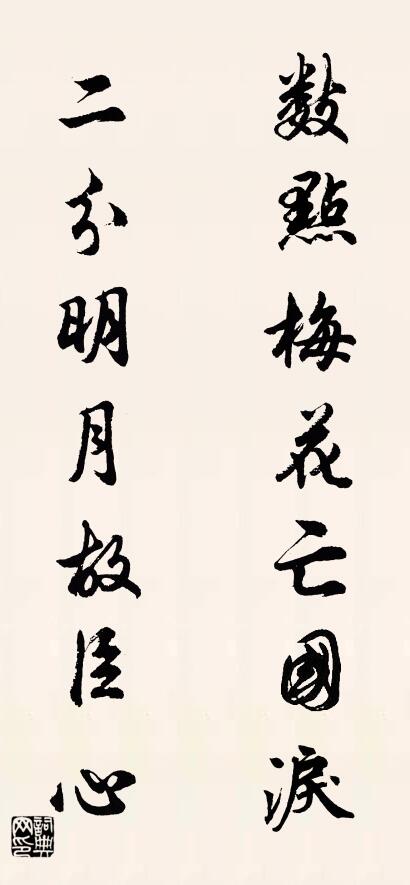 数點梅花亡國淚
二分明月故臣心
詞典网印